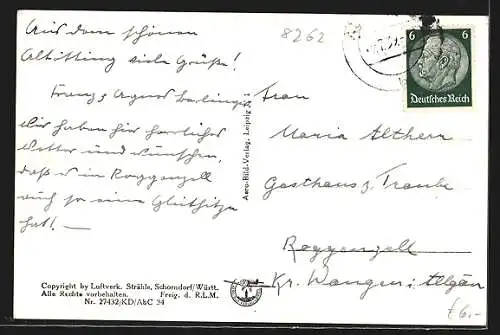 Aus dem schönen
Altötting viele Grüße!
Franz, Agnes
Wir haben hier herrliches
Wetter und wünschen,
daß in Roggenzell
auch so eine Gluthitze
hat!
8262
Frau
Maria Altherr
Gasthaus z. Traube
Roggenzell
Kr. Wangen i. Allgäu
€6.-
6 6
Deutsches Reich
Aero-Bild-Verlag, Leipzig
Copyright by Luftverk. Strähle, Schorndorf/Württ.
Alle Rechte vorbehalten. Freig. d. R.L.M.
Nr. 27432/KD/A&C 34